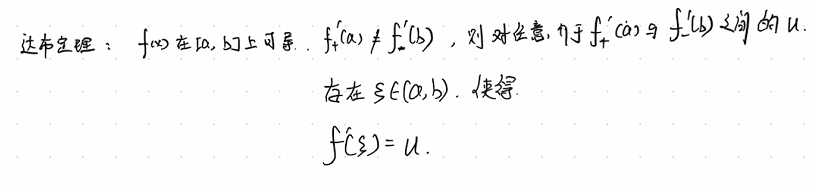 达布定理： f(x) 在[a, b]上可导. f₊′(a) ≠ f₋′(b) ，则对任意, 介于 f₊′(a) 与 f₋′(b) 之间的 u.
存在 ξ∈(a, b). 使得
f′(ξ) = u.